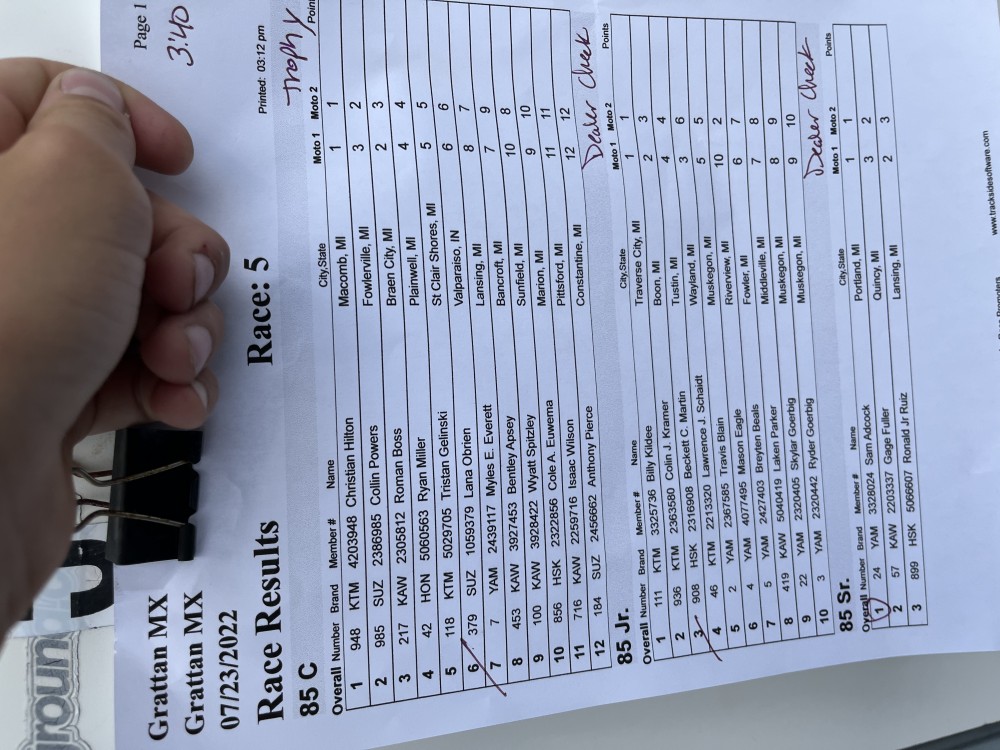 Page 1
3:40
Grattan MX
Grattan MX
07/23/2022
Printed: 03:12 pm
Race Results Race: 5
Trophy
85 C
Overall Number Brand Member # Name City,State Moto 1 Moto 2
1 948 KTM 4203948 Christian Hilton Macomb, MI 1 1
2 985 SUZ 2386985 Collin Powers Fowlerville, MI 3 2
3 217 KAW 2305812 Roman Boss Braen City, MI 2 3
4 42 HON 5060563 Ryan Miller Plainwell, MI 4 4
5 118 KTM 5029705 Tristan Gelinski St Clair Shores, MI 5 5
6 379 SUZ 1059379 Lana Obrien Valparaiso, IN 6 6
7 7 YAM 2439117 Myles E. Everett Lansing, MI 8 7
8 453 KAW 3927453 Bentley Apsey Bancroft, MI 7 9
9 100 KAW 3928422 Wyatt Spitzley Sunfield, MI 10 8
10 856 HSK 2322856 Cole A. Euwema Marion, MI 9 10
11 716 KAW 2259716 Isaac Wilson Pittsford, MI 11 11
12 184 SUZ 2456652 Anthony Pierce Constantine, MI 12 12
Dealer Check
85 Jr.
Overall Number Brand Member # Name City,State Moto 1 Moto 2 Points
1 111 KTM 3325736 Billy Kildee Traverse City, MI 1 1
2 936 KTM 2363580 Colin J. Kramer Boon, MI 2 3
3 908 HSK 2316908 Beckett C. Martin Tustin, MI 4 4
4 46 KTM 2213320 Lawrence J. Schaidt Wayland, MI 3 6
5 2 YAM 2367585 Travis Blain Muskegon, MI 5 5
6 4 YAM 4077495 Mason Eagle Riverview, MI 10 2
7 5 YAM 2427403 Breyten Beals Fowler, MI 6 7
8 419 KAW 5040419 Laken Parker Middleville, MI 7 8
9 22 YAM 2320405 Skylar Goerbig Muskegon, MI 8 9
10 3 YAM 2320442 Ryder Goerbig Muskegon, MI 9 10
Dealer Check
85 Sr.
Overall Number Brand Member # Name City,State Moto 1 Moto 2 Points
1 24 YAM 3328024 Sam Adcock Portland, MI 1 1
2 57 KAW 2203337 Gage Fuller Quincy, MI 3 2
3 899 HSK 5066607 Ronald Jr Ruiz Lansing, MI 2 3
www.tracksidesoftware.com